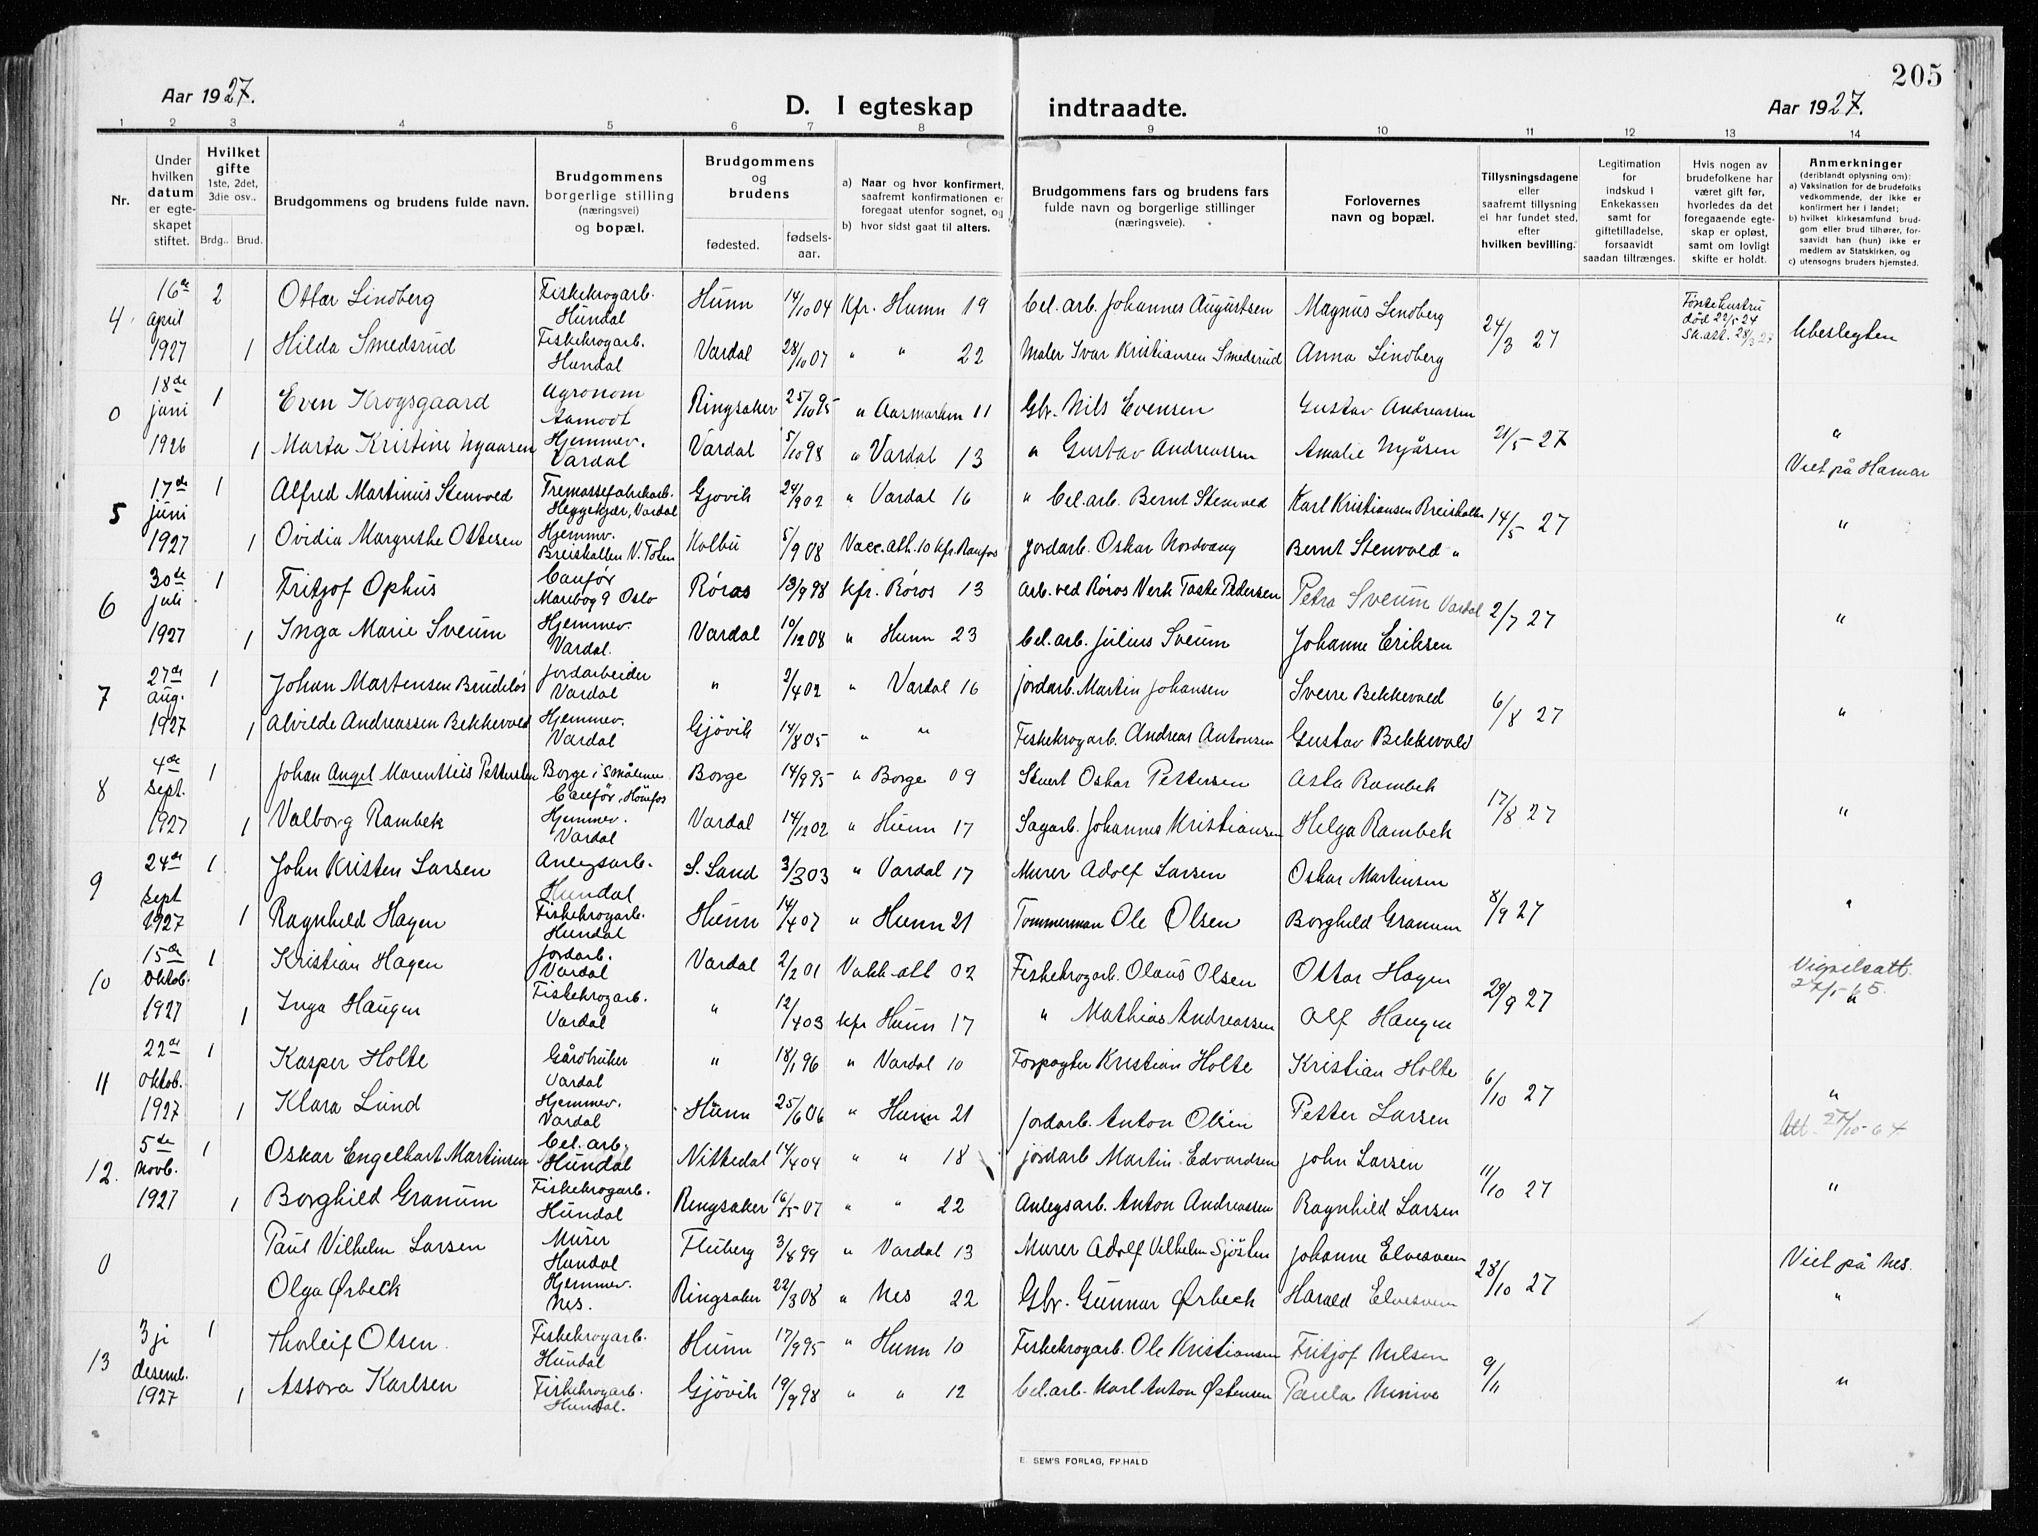 205
Aar 1927.
D. I egteskap indtraadte.
Aar 1927.
1 2 3 4 5 6 7 8 9 10 11 12 13 14
Nr.
Under hvilken datum er egteskapet stiftet.
Hvilket gifte 1ste, 2det, 3die osv..
Brdg.. Brud.
Brudgommens og brudens fulde navn.
Brudgommens borgerlige stilling (næringsvei) og bopæl.
Brudgommens og brudens
fødested. fødselsaar.
a) Naar og hvor konfirmert, saafremt konfirmationen er foregaat utenfor sognet, og
b) hvor sidst gaat til alters.
Brudgommens fars og brudens fars fulde navn og borgerlige stillinger (næringsveie).
Forlovernes navn og bopæl.
Tillysningsdagene eller saafremt tillysning ei har fundet sted, efter hvilken bevilling.
Legitimation for indskud i Enkekassen samt for giftetilladelse, forsaavidt saadan tiltrænges.
Hvis nogen av brudefolkene har været gift før, hvorledes da det foregaaende egteskap er opløst, samt om lovligt skifte er holdt.
Anmerkninger (deriblandt oplysning om): a) Vaksination for de brudefolks vedkommende, der ikke er konfirmert her i landet; b) hvilket kirkesamfund brudgom eller brud tilhører, forsaavidt han (hun) ikke er medlem av Statskirken, og c) utensogns bruders hjemsted.
4 16de april 1927 2 Ottar Lindberg Fiskekrogarb. Hundal Hunn 14/10 04 Kfr. Hunn 19 Cel. arb. Johannes Augustsen Magnus Lindberg 24/3 27 Første hustru død 22/5 24 Sk. att. 28/3 27 Ubeslegten
1 Hilda Smedsrud Fiskekrogarb. Hundal Vardal 28/10 07 " " 22 Maler Ivar Kristiansen Smedsrud Anna Lindberg
0 18de juni 1926 1 Even Krogsgaard Agronom Aamodt Ringsaker 25/10 95 " Aasmarken 11 Gbr. Nils Evensen Gustav Andreassen 21/5 - 27 "
1 Marta Kristine Nyaasen Hjemmev. Vardal Vardal 5/10 98 " Vardal 13 " Gustav Andreassen Amalie Nyåsen Viet på Hamar
5 17de juni 1927 1 Alfred Martinus Stenvold Tremassefabrikarb. Heggekjær, Vardal Gjøvik 24/9 02 " Vardal 16 " Cel. arb. Bernt Stenvold Karl Kristiansen Breiskallen 14/5 27 "
1 Ovidia Margrethe Ottesen Hjemmv. Breiskallen V. Toten Kolbu 5/9 08 Vacc. ath. 10 kfr. Raufos Jordarb. Oskar Nordvang Bernt Stenvold "
6 30de juli 1927 1 Fritjof Ophus Canfør Marebog 9 Oslo Røros 13/9 98 kfr. Røros 13 Arb. ved Røros Verk Taste Pedersen Petra Sveum Vardal 2/7 27 "
1 Inga Marie Sveum Hjemmev. Vardal. Vardal 10/12 08 " Hunn 23 Cel. arb. Julius Sveum Johanne Eriksen
7 27de aug. 1927 1 Johan Martensen Brudeløs Jordarbeider Vardal " 2/4 02 " Vardal 16 Jordarb. Martin Johansen Sverre Bekkevold 6/8 27 "
1 Alvilde Andreassen Bekkevold Hjemmev. Vardal Gjøvik 14/8 05 " " Fiskekrogarb. Andreas Antonsen Gustav Bekkevold
8 4de sept. 1927 1 Johan Angel Marenthius Pettersen Borge i Smålenene Canfør, Hønefos Borge 14/9 95 " Borge 09 Stuert Oskar Pettersen Asta Rambek 17/8 27 "
1 Valborg Rambek Hjemmev. Vardal Vardal 14/12 02 " Hunn 17 Sagarb. Johannes Kristiansen Helga Rambek
9 24de sept 1927 1 John Kristen Larsen Anlegsarb. Hundal S. Land 3/3 03 " Vardal 17 Murer Adolf Larsen Oskar Martinsen 8/9 27 "
1 Ragnhild Hagen Fiskekrogarb. Hundal Hunn 14/4 07 " Hunn 21 Tømmerman Ole Olsen Borghild Granum
10 15de oktob. 1927 1 Kristian Hagen Jordarb. Vardal Vardal 2/2 01 Vakk. att 02 Fiskekrogarb. Olaus Olsen Ottar Hagen 29/9 27 Vigselsatt. 27/5 65. "
1 Inga Haugen Fiskekrogarb. Vardal " 12/4 03 kfr Hunn 17 " Mathias Andreassen Alf Haugen
11 22de oktob. 1927 1 Kasper Holte Gårdbruker Vardal " 18/1 96 " Vardal 10 Forpagter Kristian Holte Kristian Holte 6/10 27 "
1 Klara Lund Hjemmev. Vardal Hunn 25/6 06 " Hunn 21 Jordarb. Anton Olsen Petter Larsen Att. 27/10-64
12. 5de novb. 1927 1 Oskar Engelhart Martinsen Cel. arb. Hundal Nittedal 14/4 04 " " 18 Jordarb Martin Edvardsen John Larsen 11/10 27 "
1 Borghild Granum Fiskekrogarb. Hundal Ringsaker 16/5 07 " " 22 Anlegsarb. Anton Andreassen Ragnhild Larsen
0 Paul Vilhelm Larsen Murer Hundal Fluberg 3/8 99 " Vardal 13 Murer Adolf Vilhelm Sjøsten Johanne Elvesveen 28/10 27 Viet på Nes.
Olga Ørbeck Hjemmev. Nes. Ringsaker 22/3 08 " Nes 22 Gbr. Gunnar Ørbeck Harald Elvesveen "
13 3ji desemb. 1927 1 Thorleif Olsen Fiskekrogarb. Hundal Hunn 17/9 95 " Hunn 10 Fiskekrogarb. Ole Kristiansen Fritjof Nilsen 9/11 "
1 Assora Karlsen Fiskekrogarb. Hundal. Gjøvik 19/9 98 " " 12 Cel. arb. Karl Anton Østensen Paula Minive
E. SEM'S FORLAG, FR.HALD